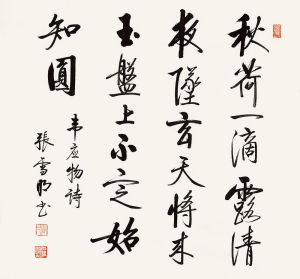 秋荷一滴露清
夜墜玄天將来
玉盤上不定始
知圓
韦应物詩
張雪明书